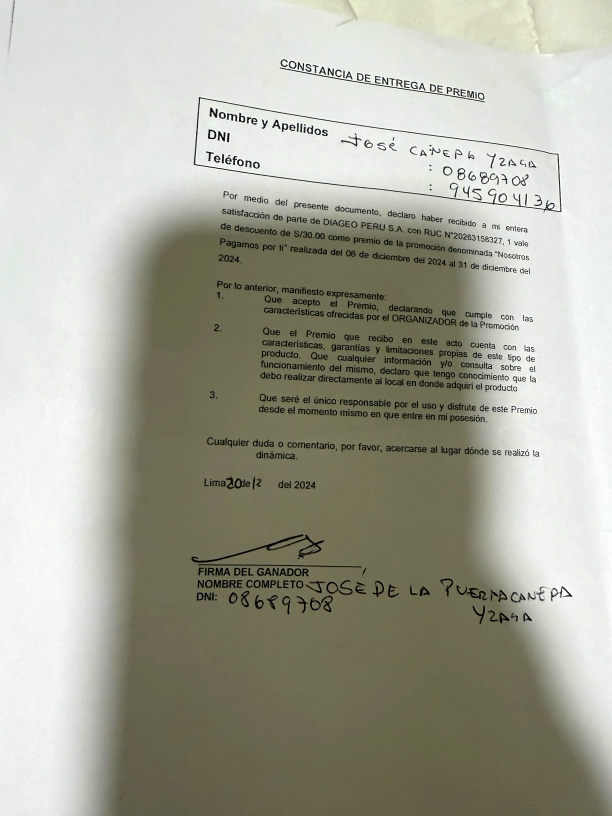 CONSTANCIA DE ENTREGA DE PREMIO
Nombre y Apellidos José CANEPA YZAGA
DNI : 08689708
Teléfono : 945904136
Por medio del presente documento, declaro haber recibido a mi entera
satisfacción de parte de DIAGEO PERU S.A. con RUC N°20263158327, 1 vale
de descuento de S/30.00 como premio de la promoción denominada "Nosotros
Pagamos por ti" realizada del 06 de diciembre del 2024 al 31 de diciembre del
2024.
Por lo anterior, manifiesto expresamente:
1. Que acepto el Premio, declarando que cumple con las
características ofrecidas por el ORGANIZADOR de la Promoción
2. Que el Premio que recibo en este acto cuenta con las
características, garantías y limitaciones propias de este tipo de
producto. Que cualquier información y/o consulta sobre el
funcionamiento del mismo, declaro que tengo conocimiento que la
debo realizar directamente al local en donde adquirí el producto
3. Que seré el único responsable por el uso y disfrute de este Premio
desde el momento mismo en que entre en mi posesión.
Cualquier duda o comentario, por favor, acercarse al lugar dónde se realizó la
dinámica.
Lima 20 de 12 del 2024
FIRMA DEL GANADOR
NOMBRE COMPLETO JOSÉ DE LA PUERTA CANEPA
YZAGA
DNI: 08689708